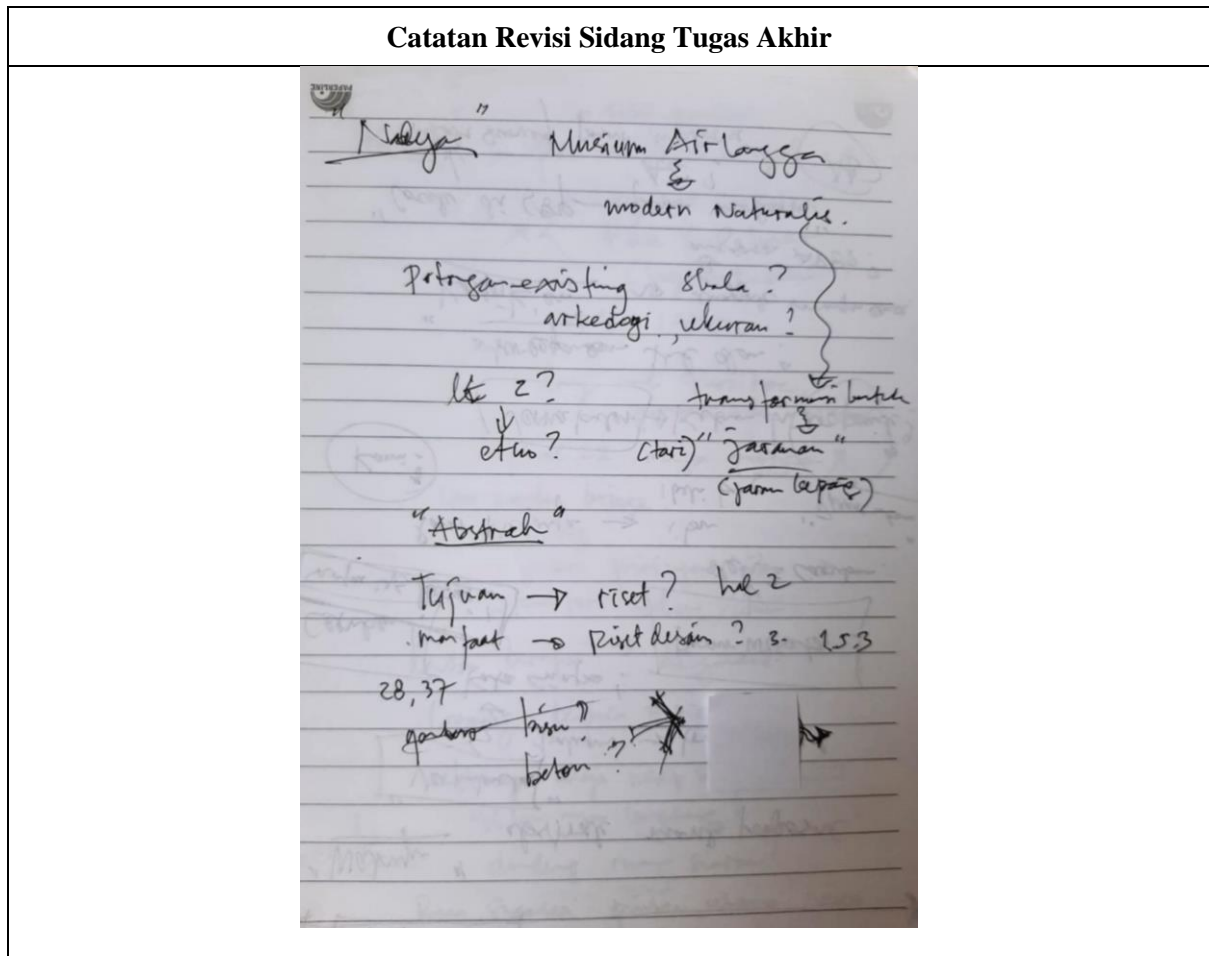 Catatan Revisi Sidang Tugas Akhir
PAPERLINE
" " Musium Airlangga
modern Naturalis.
Potongan existing skala?
arkeologi, ukuran?
lt 2? transformasi bentuk
etno? (tari) "jaranan"
(jaran kepang)
"Abstrak"
Tujuan → riset? hal 2
manfaat → Riset desain? 3. 1.5.3
28, 37
beton?